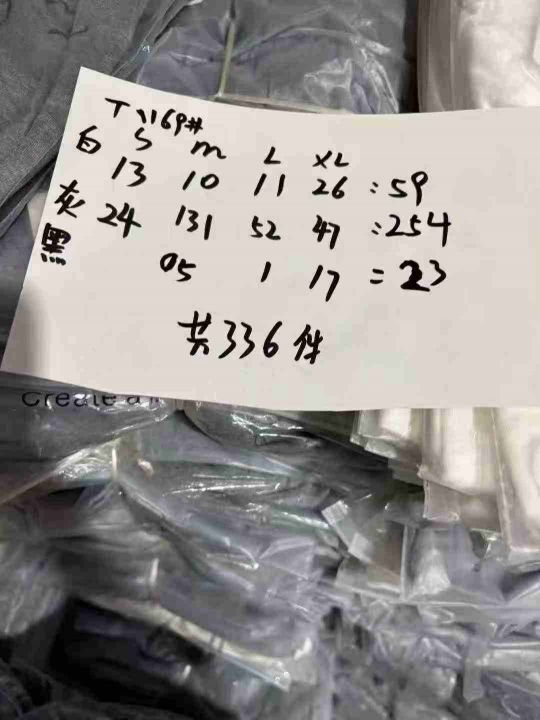 T1169#
S m L XL
白 13 10 11 26 :59
灰 24 131 52 47 :254
黑 05 1 17 = 23
共336件
Create a